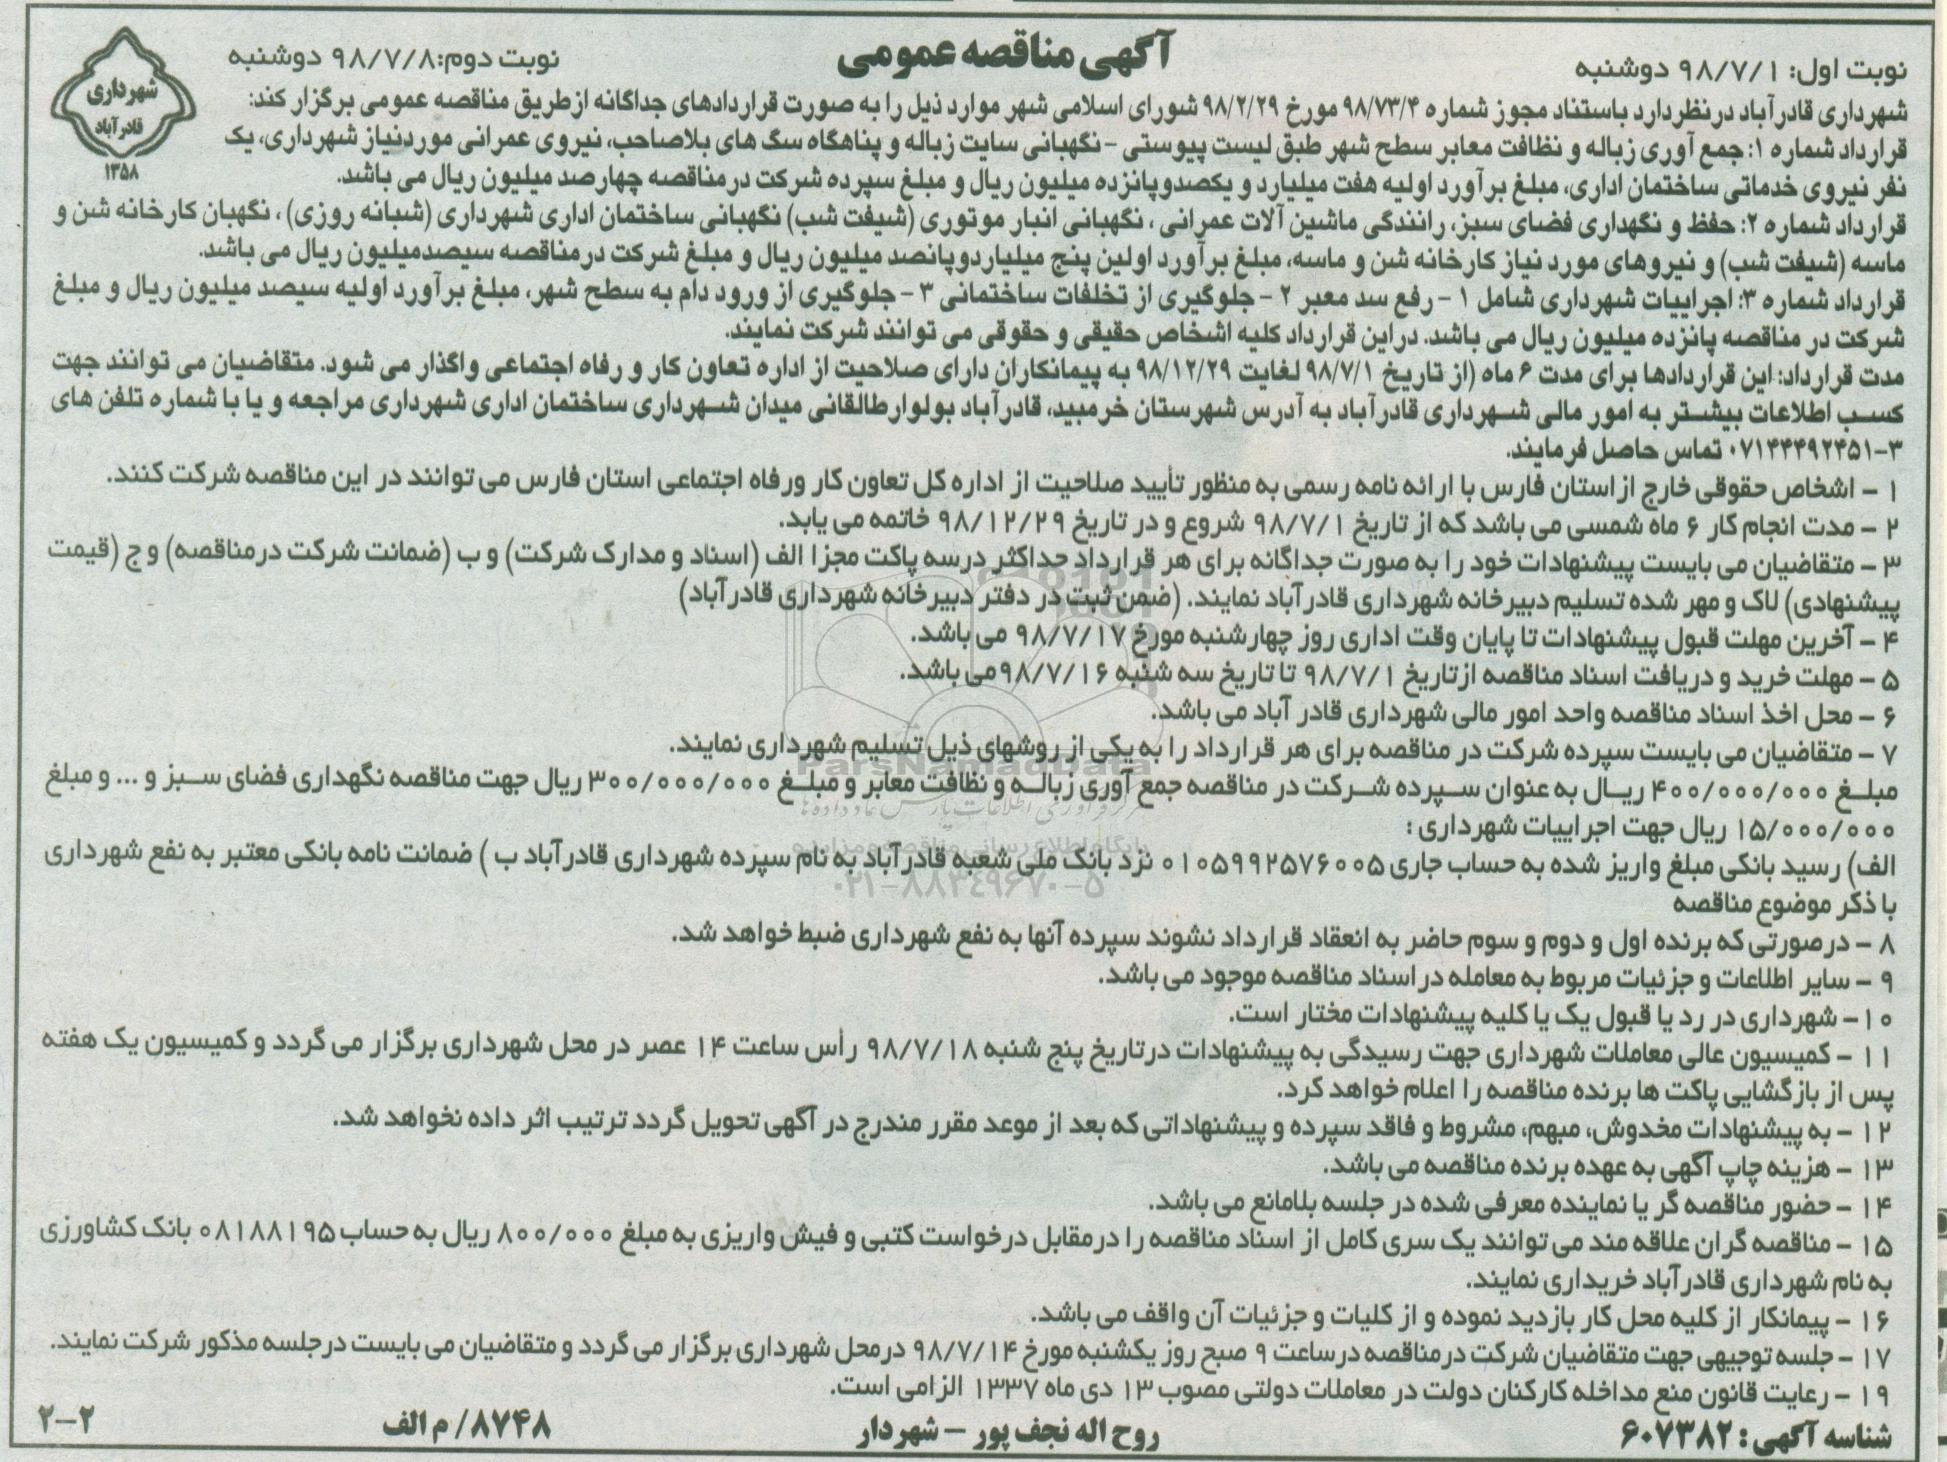 آگهی مناقصه عمومی
نوبت اول: ۹۸/۷/۱ دوشنبه
نوبت دوم:۹۸/۷/۸ دوشنبه
شهرداری
قادرآباد
۱۳۵۸
شهرداری قادرآباد درنظردارد باستناد مجوز شماره ۹۸/۷۳/۴ مورخ ۹۸/۲/۲۹ شورای اسلامی شهر موارد ذیل را به صورت قراردادهای جداگانه ازطریق مناقصه عمومی برگزار کند:
قرارداد شماره ۱: جمع آوری زباله و نظافت معابر سطح شهر طبق لیست پیوستی - نگهبانی سایت زباله و پناهگاه سگ های بلاصاحب، نیروی عمرانی موردنیاز شهرداری، یک
نفر نیروی خدماتی ساختمان اداری، مبلغ برآورد اولیه هفت میلیارد و یکصدوپانزده میلیون ریال و مبلغ سپرده شرکت درمناقصه چهارصد میلیون ریال می باشد.
قرارداد شماره ۲: حفظ و نگهداری فضای سبز، رانندگی ماشین آلات عمرانی ، نگهبانی انبار موتوری (شیفت شب) نگهبانی ساختمان اداری شهرداری (شبانه روزی) ، نگهبان کارخانه شن و
ماسه (شیفت شب) و نیروهای مورد نیاز کارخانه شن و ماسه، مبلغ برآورد اولین پنج میلیاردوپانصد میلیون ریال و مبلغ شرکت درمناقصه سیصدمیلیون ریال می باشد.
قرارداد شماره ۳: اجراییات شهرداری شامل ۱ - رفع سد معبر ۲ - جلوگیری از تخلفات ساختمانی ۳ - جلوگیری از ورود دام به سطح شهر، مبلغ برآورد اولیه سیصد میلیون ریال و مبلغ
شرکت در مناقصه پانزده میلیون ریال می باشد. دراین قرارداد کلیه اشخاص حقیقی و حقوقی می توانند شرکت نمایند.
مدت قرارداد: این قراردادها برای مدت ۶ ماه (از تاریخ ۹۸/۷/۱ لغایت ۹۸/۱۲/۲۹ به پیمانکاران دارای صلاحیت از اداره تعاون کار و رفاه اجتماعی واگذار می شود. متقاضیان می توانند جهت
کسب اطلاعات بیشتر به امور مالی شهرداری قادرآباد به آدرس شهرستان خرمبید، قادرآباد بولوارطالقانی میدان شهرداری ساختمان اداری شهرداری مراجعه و یا با شماره تلفن های
۰۷۱۴۴۴۹۲۴۵۱-۳ تماس حاصل فرمایند.
۱ - اشخاص حقوقی خارج ازاستان فارس با ارائه نامه رسمی به منظور تأیید صلاحیت از اداره کل تعاون کار ورفاه اجتماعی استان فارس می توانند در این مناقصه شرکت کنند.
۲ - مدت انجام کار ۶ ماه شمسی می باشد که از تاریخ ۹۸/۷/۱ شروع و در تاریخ ۹۸/۱۲/۲۹ خاتمه می یابد.
۳ - متقاضیان می بایست پیشنهادات خود را به صورت جداگانه برای هر قرارداد حداکثر درسه پاکت مجزا الف (اسناد و مدارک شرکت) و ب (ضمانت شرکت درمناقصه) و ج (قیمت
پیشنهادی) لاک و مهر شده تسلیم دبیرخانه شهرداری قادرآباد نمایند. (ضمن ثبت در دفتر دبیرخانه شهرداری قادرآباد)
۴ - آخرین مهلت قبول پیشنهادات تا پایان وقت اداری روز چهارشنبه مورخ ۹۸/۷/۱۷ می باشد.
۵ - مهلت خرید و دریافت اسناد مناقصه ازتاریخ ۹۸/۷/۱ تا تاریخ سه شنبه ۹۸/۷/۱۶می باشد.
۶ - محل اخذ اسناد مناقصه واحد امور مالی شهرداری قادر آباد می باشد.
۷ - متقاضیان می بایست سپرده شرکت در مناقصه برای هر قرارداد را به یکی از روشهای ذیل تسلیم شهرداری نمایند.
ParsNamadData
مبلغ ۴۰۰/۰۰۰/۰۰۰ ریال به عنوان سپرده شرکت در مناقصه جمع آوری زباله و نظافت معابر و مبلغ ۳۰۰/۰۰۰/۰۰۰ ریال جهت مناقصه نگهداری فضای سبز و ... و مبلغ
۱۵/۰۰۰/۰۰۰ ریال جهت اجراییات شهرداری :
پایگاه اطلاع رسانی مناقصه و مزایده
الف) رسید بانکی مبلغ واریز شده به حساب جاری ۰۱۰۵۹۹۲۵۷۶۰۰۵ نزد بانک ملی شعبه قادرآباد به نام سپرده شهرداری قادرآباد ب ) ضمانت نامه بانکی معتبر به نفع شهرداری
۰۲۱-۸۸۳۴۹۶۷۰-۵
با ذکر موضوع مناقصه
۸ - درصورتی که برنده اول و دوم و سوم حاضر به انعقاد قرارداد نشوند سپرده آنها به نفع شهرداری ضبط خواهد شد.
۹ - سایر اطلاعات و جزئیات مربوط به معامله دراسناد مناقصه موجود می باشد.
۱۰- شهرداری در رد یا قبول یک یا کلیه پیشنهادات مختار است.
۱۱ - کمیسیون عالی معاملات شهرداری جهت رسیدگی به پیشنهادات درتاریخ پنج شنبه ۹۸/۷/۱۸ رأس ساعت ۱۴ عصر در محل شهرداری برگزار می گردد و کمیسیون یک هفته
پس از بازگشایی پاکت ها برنده مناقصه را اعلام خواهد کرد.
۱۲ - به پیشنهادات مخدوش، مبهم، مشروط و فاقد سپرده و پیشنهاداتی که بعد از موعد مقرر مندرج در آگهی تحویل گردد ترتیب اثر داده نخواهد شد.
۱۳ - هزینه چاپ آگهی به عهده برنده مناقصه می باشد.
۱۴ - حضور مناقصه گر یا نماینده معرفی شده در جلسه بلامانع می باشد.
۱۵ - مناقصه گران علاقه مند می توانند یک سری کامل از اسناد مناقصه را درمقابل درخواست کتبی و فیش واریزی به مبلغ ۸۰۰/۰۰۰ ریال به حساب ۰۸۱۸۸۱۹۵ بانک کشاورزی
به نام شهرداری قادرآباد خریداری نمایند.
۱۶ - پیمانکار از کلیه محل کار بازدید نموده و از کلیات و جزئیات آن واقف می باشد.
۱۷ - جلسه توجیهی جهت متقاضیان شرکت درمناقصه درساعت ۹ صبح روز یکشنبه مورخ ۹۸/۷/۱۴ درمحل شهرداری برگزار می گردد و متقاضیان می بایست درجلسه مذکور شرکت نمایند.
۱۹ - رعایت قانون منع مداخله کارکنان دولت در معاملات دولتی مصوب ۱۳ دی ماه ۱۳۳۷ الزامی است.
شناسه آگهی : ۶۰۷۳۸۲
روح اله نجف پور - شهردار
۸۷۴۸/ م الف
۲-۲